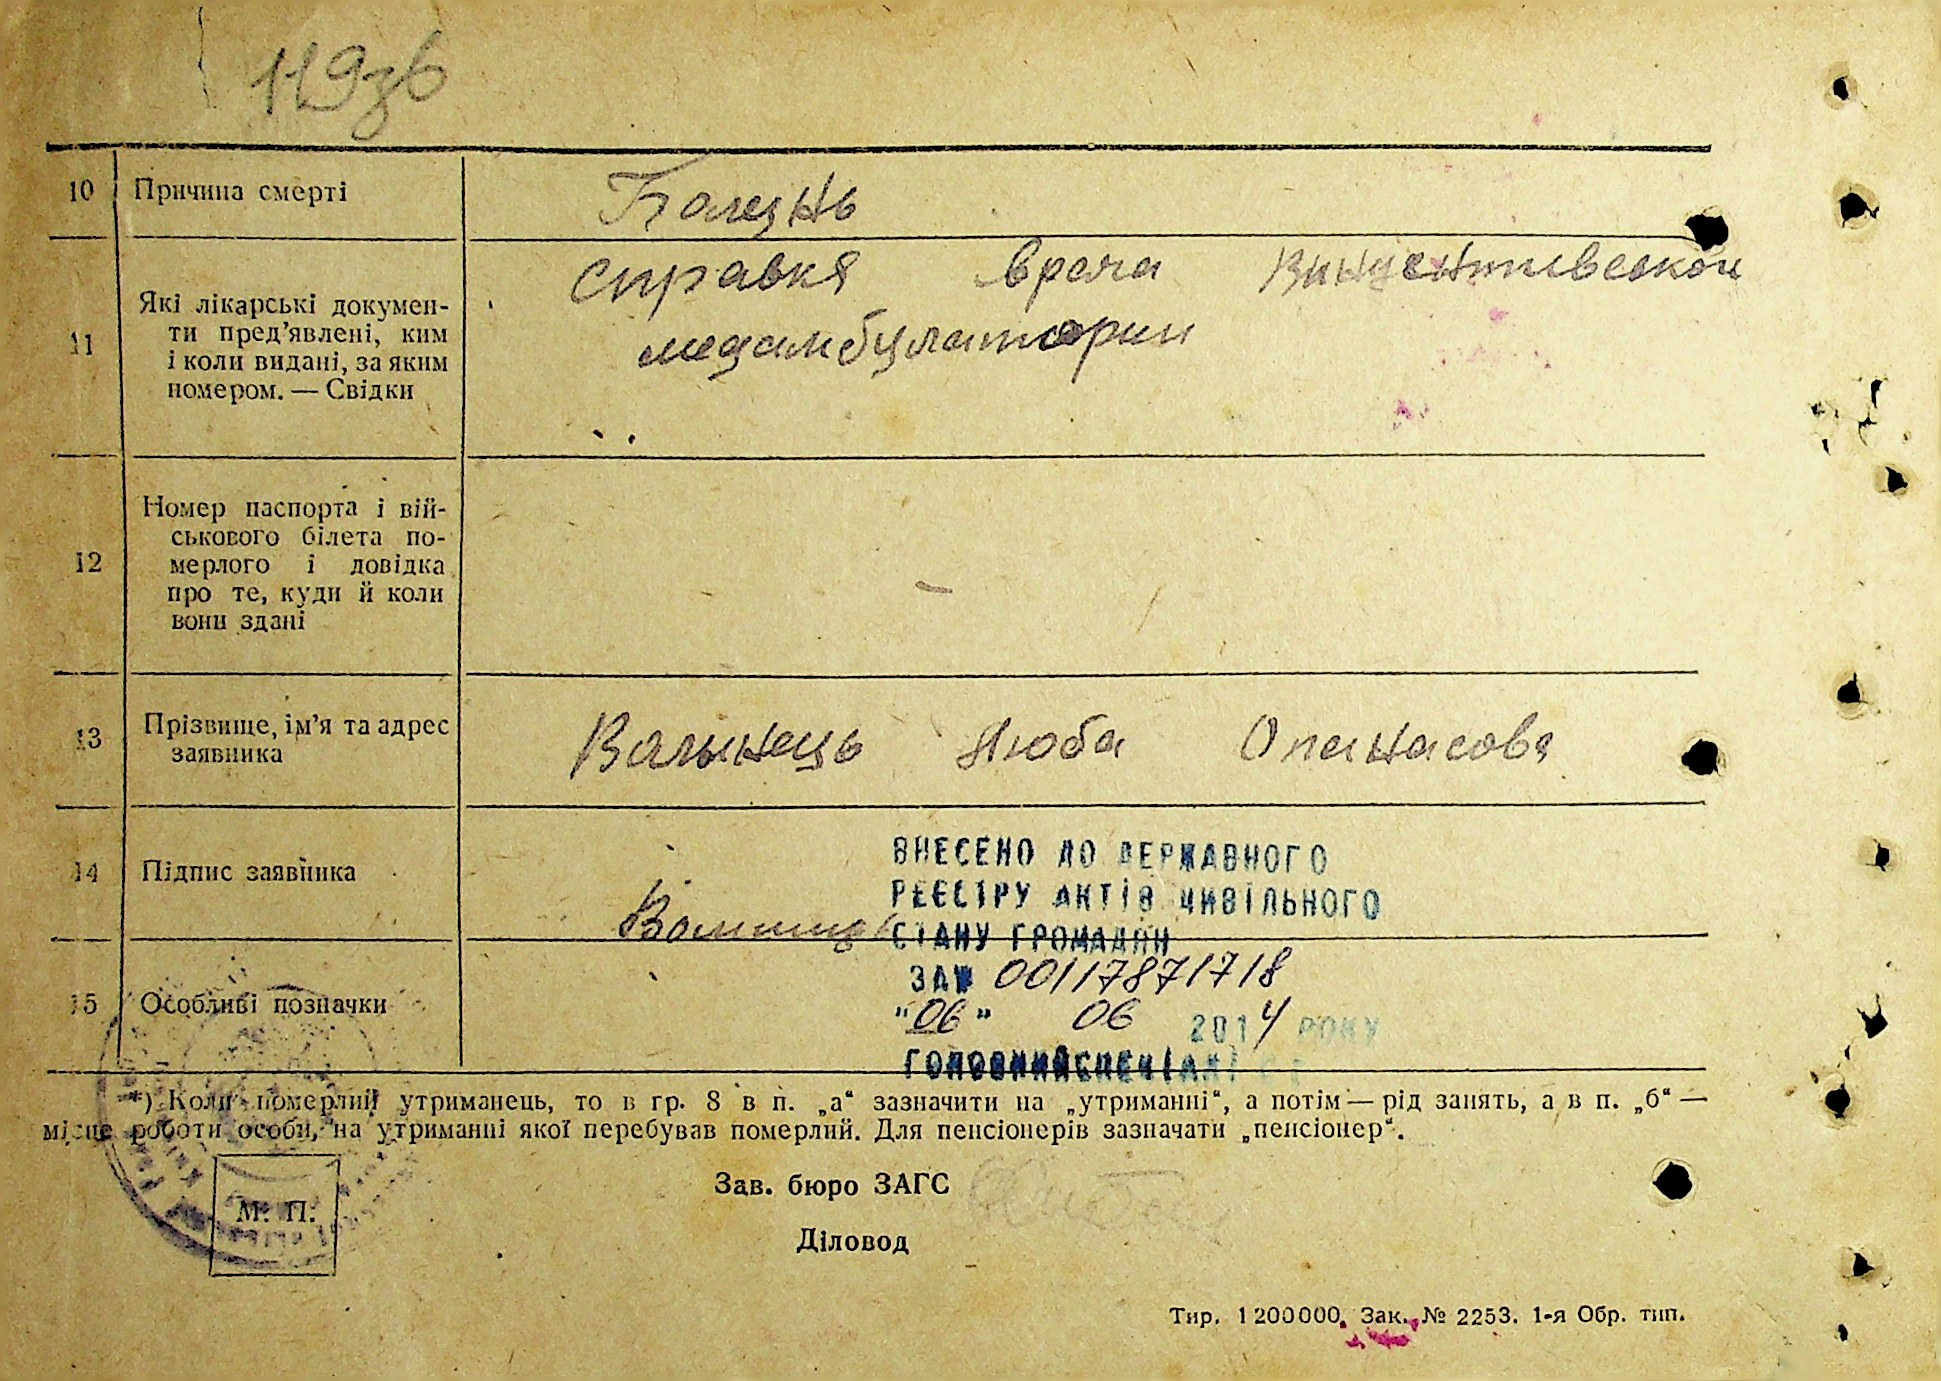 119зв
10 Причина смерти Болезнь
11 Які лікарські докумен-
ти пред'явлені, ким
і коли видані, за яким
номером. — Свідки
справка врача
медамбулатории
12 Номер паспорта і вій-
ськового білета по-
мерлого і довідка
про те, куди й коли
вони здані
–
13 Прізвище, ім'я та адрес
заявника
Волынець Люба Опанасова
14 Підпис заявника
ВНЕСЕНО ДО ДЕРЖАВНОГО
РЕЄСТРУ АКТІВ ЦИВІЛЬНОГО
СТАНУ ГРОМАДЯН
ЗА № 00117871718
"06" 06 2014 РОКУ
ГОЛОВНИЙ СПЕЦІАЛІСТ
15 Особливі позначки
*) Коли померлий утриманець, то в гр. 8 в п. „а“ зазначити на „утриманні“, а потім — рід занять, а в п. „б“ —
місце роботи особи, на утриманні якої перебував померлий. Для пенсіонерів зазначати „пенсіонер“.
М. П.
Зав. бюро ЗАГС
Діловод
Тир. 1200000. Зак. № 2253. 1-я Обр. тип.